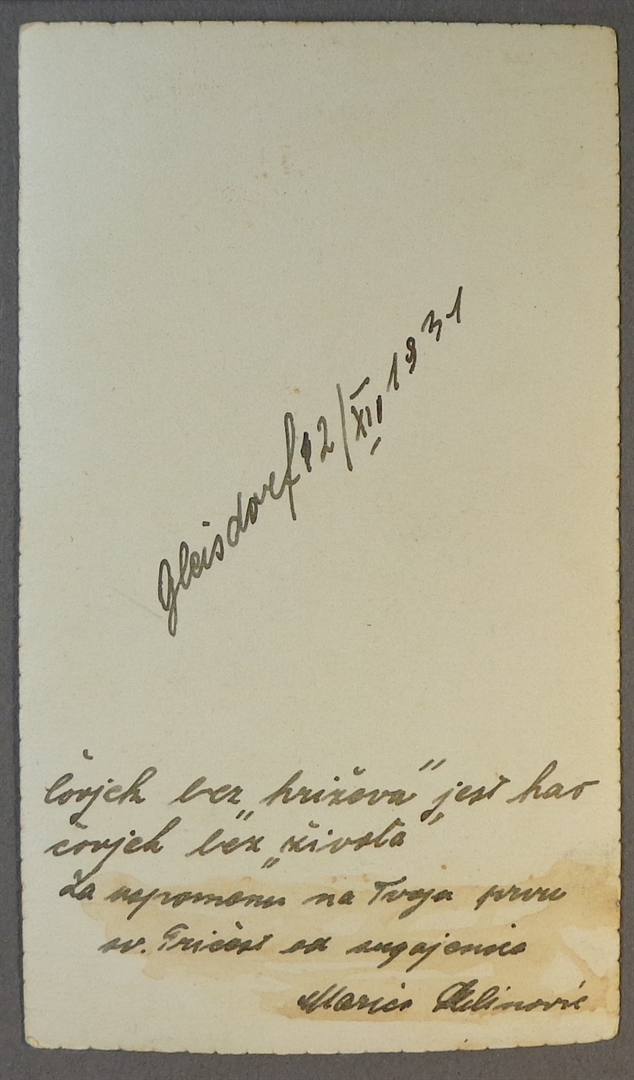 Gleisdorf 12/XII 1931
Čovjek bez „križeva” jest kao
čovjek bez „života”
Za uspomenu na Tvoju prvu
sv. Pričest od
Marica